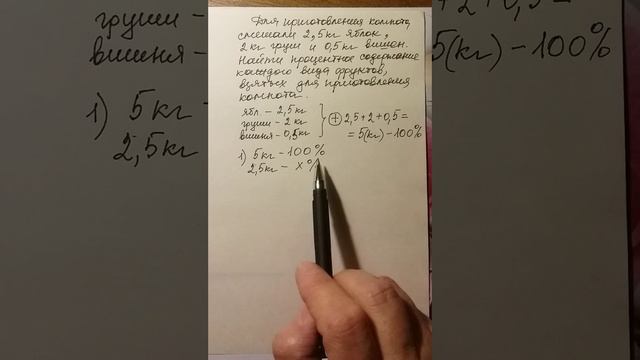 Для приготовления компота
смешали 2,5 кг яблок,
2 кг груш и 0,5 кг вишни.
Найти процентное содержание
каждого вида фруктов,
взятых для приготовления
компота.
ябл. – 2,5 кг
груши – 2 кг
вишня – 0,5 кг
+ 2,5 + 2 + 0,5 =
= 5 (кг) – 100%
1) 5 кг – 100%
2,5 кг – x %